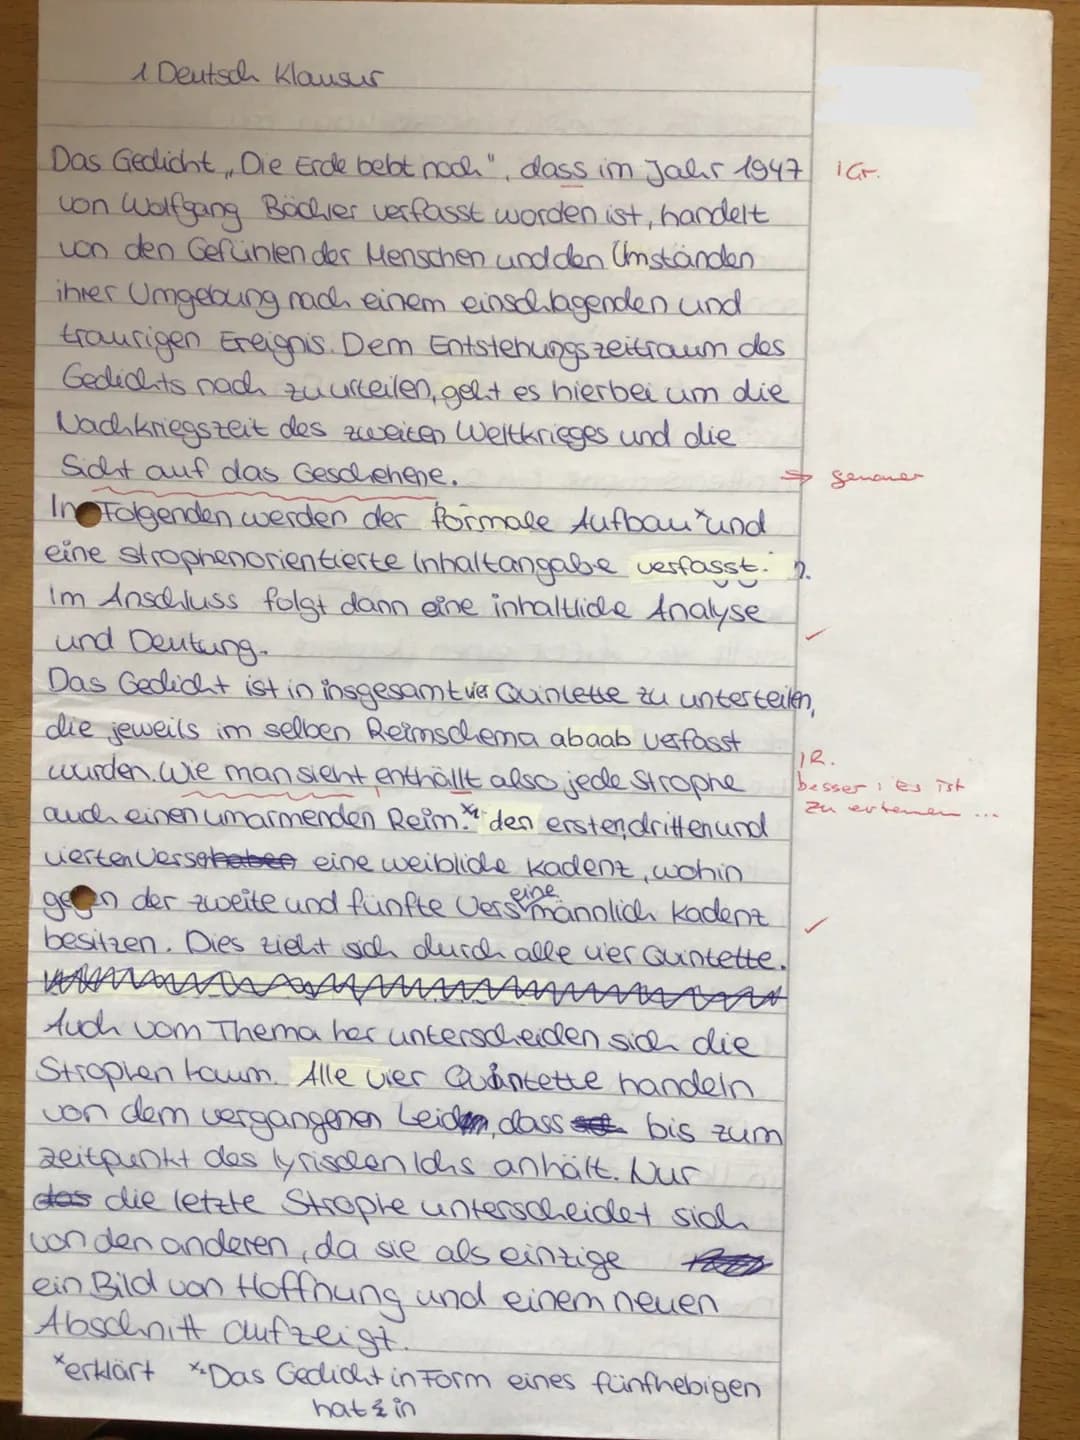 1 Deutsch Klausur
Das Gedicht „Die Erde bebt noch", dass im Jahr 1947
1 Gr.
von Wolfgang Bächler verfasst worden ist, handelt
von den Gefühlen der Menschen und den Umständen
ihrer Umgebung nach einem einschlagenden und
traurigen Ereignis. Dem Entstehungszeitraum des
Gedichts nach zu urteilen, geht es hierbei um die
Nachkriegszeit des zweiten Weltkrieges und die
Sicht auf das Geschehene.
⇒ genauer
Im Folgenden werden der formale Aufbau * und
eine strophenorientierte Inhaltangabe verfasst.
Im Anschluss folgt dann eine inhaltliche Analyse
und Deutung.
Das Gedicht ist in insgesamt vier Quintette zu unterteilen,
die jeweils im selben Reimschema abaab verfasst
1 R.
wurden. Wie man sieht enthällt also jede Strophe
besser: Es ist
zu erkennen ...
auch einen umarmenden Reim. *² den ersten, dritten und
vierten Vers haben eine weibliche Kadenz, wohin
gegen der zweite und fünfte Vers eine männlich Kadenz
besitzen. Dies zieht sich durch alle vier Quintette.
Auch vom Thema her unterscheiden sich die
Strophen kaum. Alle vier Quintette handeln
von dem vergangenen Leid, dass bis zum
Zeitpunkt des lyrischen Ichs anhält. Nur
das die letzte Strophe unterscheidet sich
von den anderen, da sie als einzige
ein Bild von Hoffnung und einem neuen
Abschnitt aufzeigt.
* erklärt *² Das Gedicht in Form eines fünfhebigen
hat in